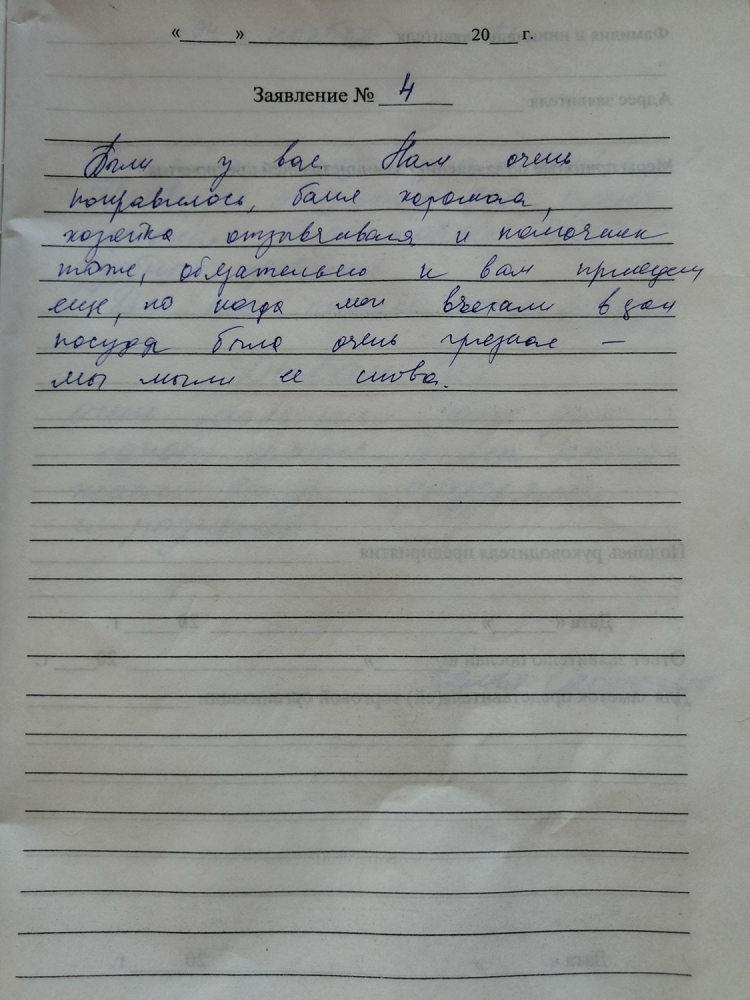 «____» ____________________ 20__ г.
Заявление № 4
Были у вас. Нам очень
понравилось, баня хорошая,
хозяйка отзывчивая и помощник
тоже, обязательно к вам приедем
еще, но когда мы въехали в дом
посуда была очень грязная —
мы мыли ее снова.